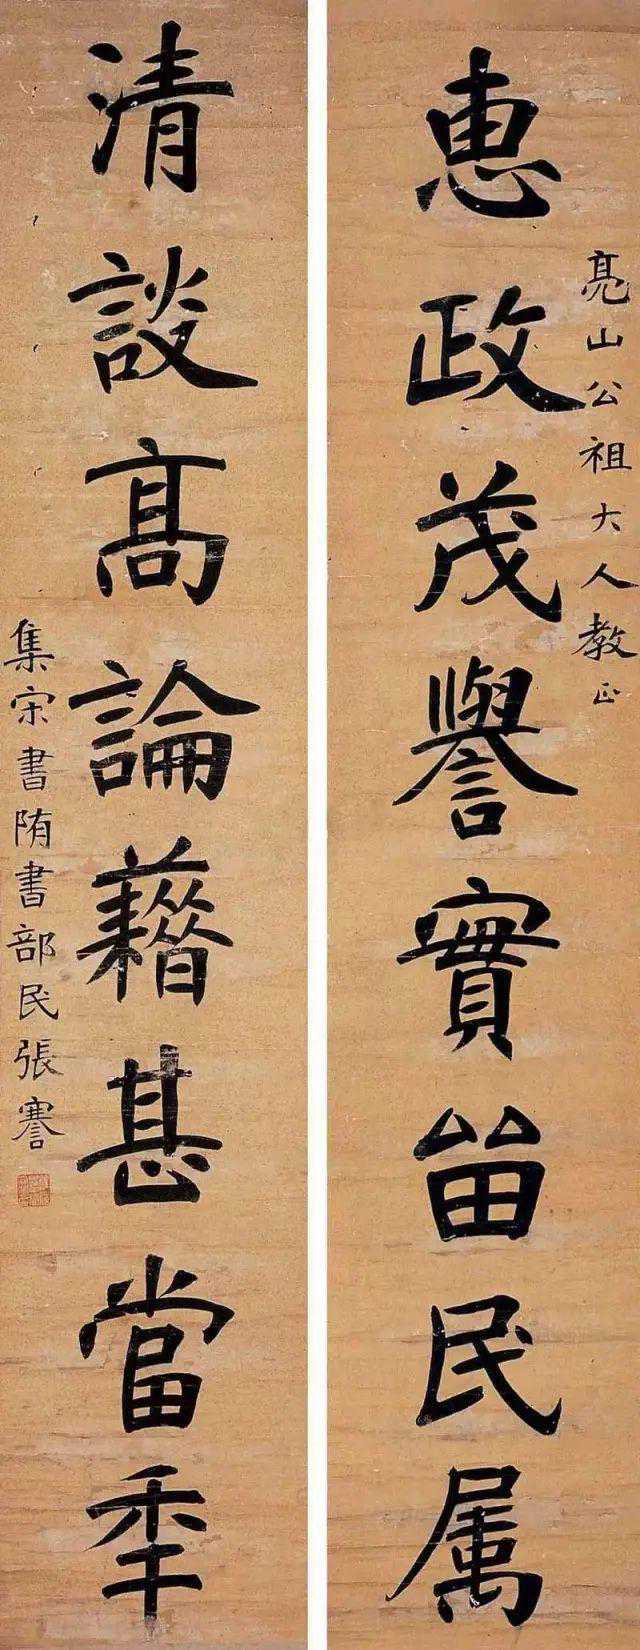 亮山公祖大人教正
惠政茂譽實留民属
清談髙論藉甚當秊
集宋書隋書部民張謇